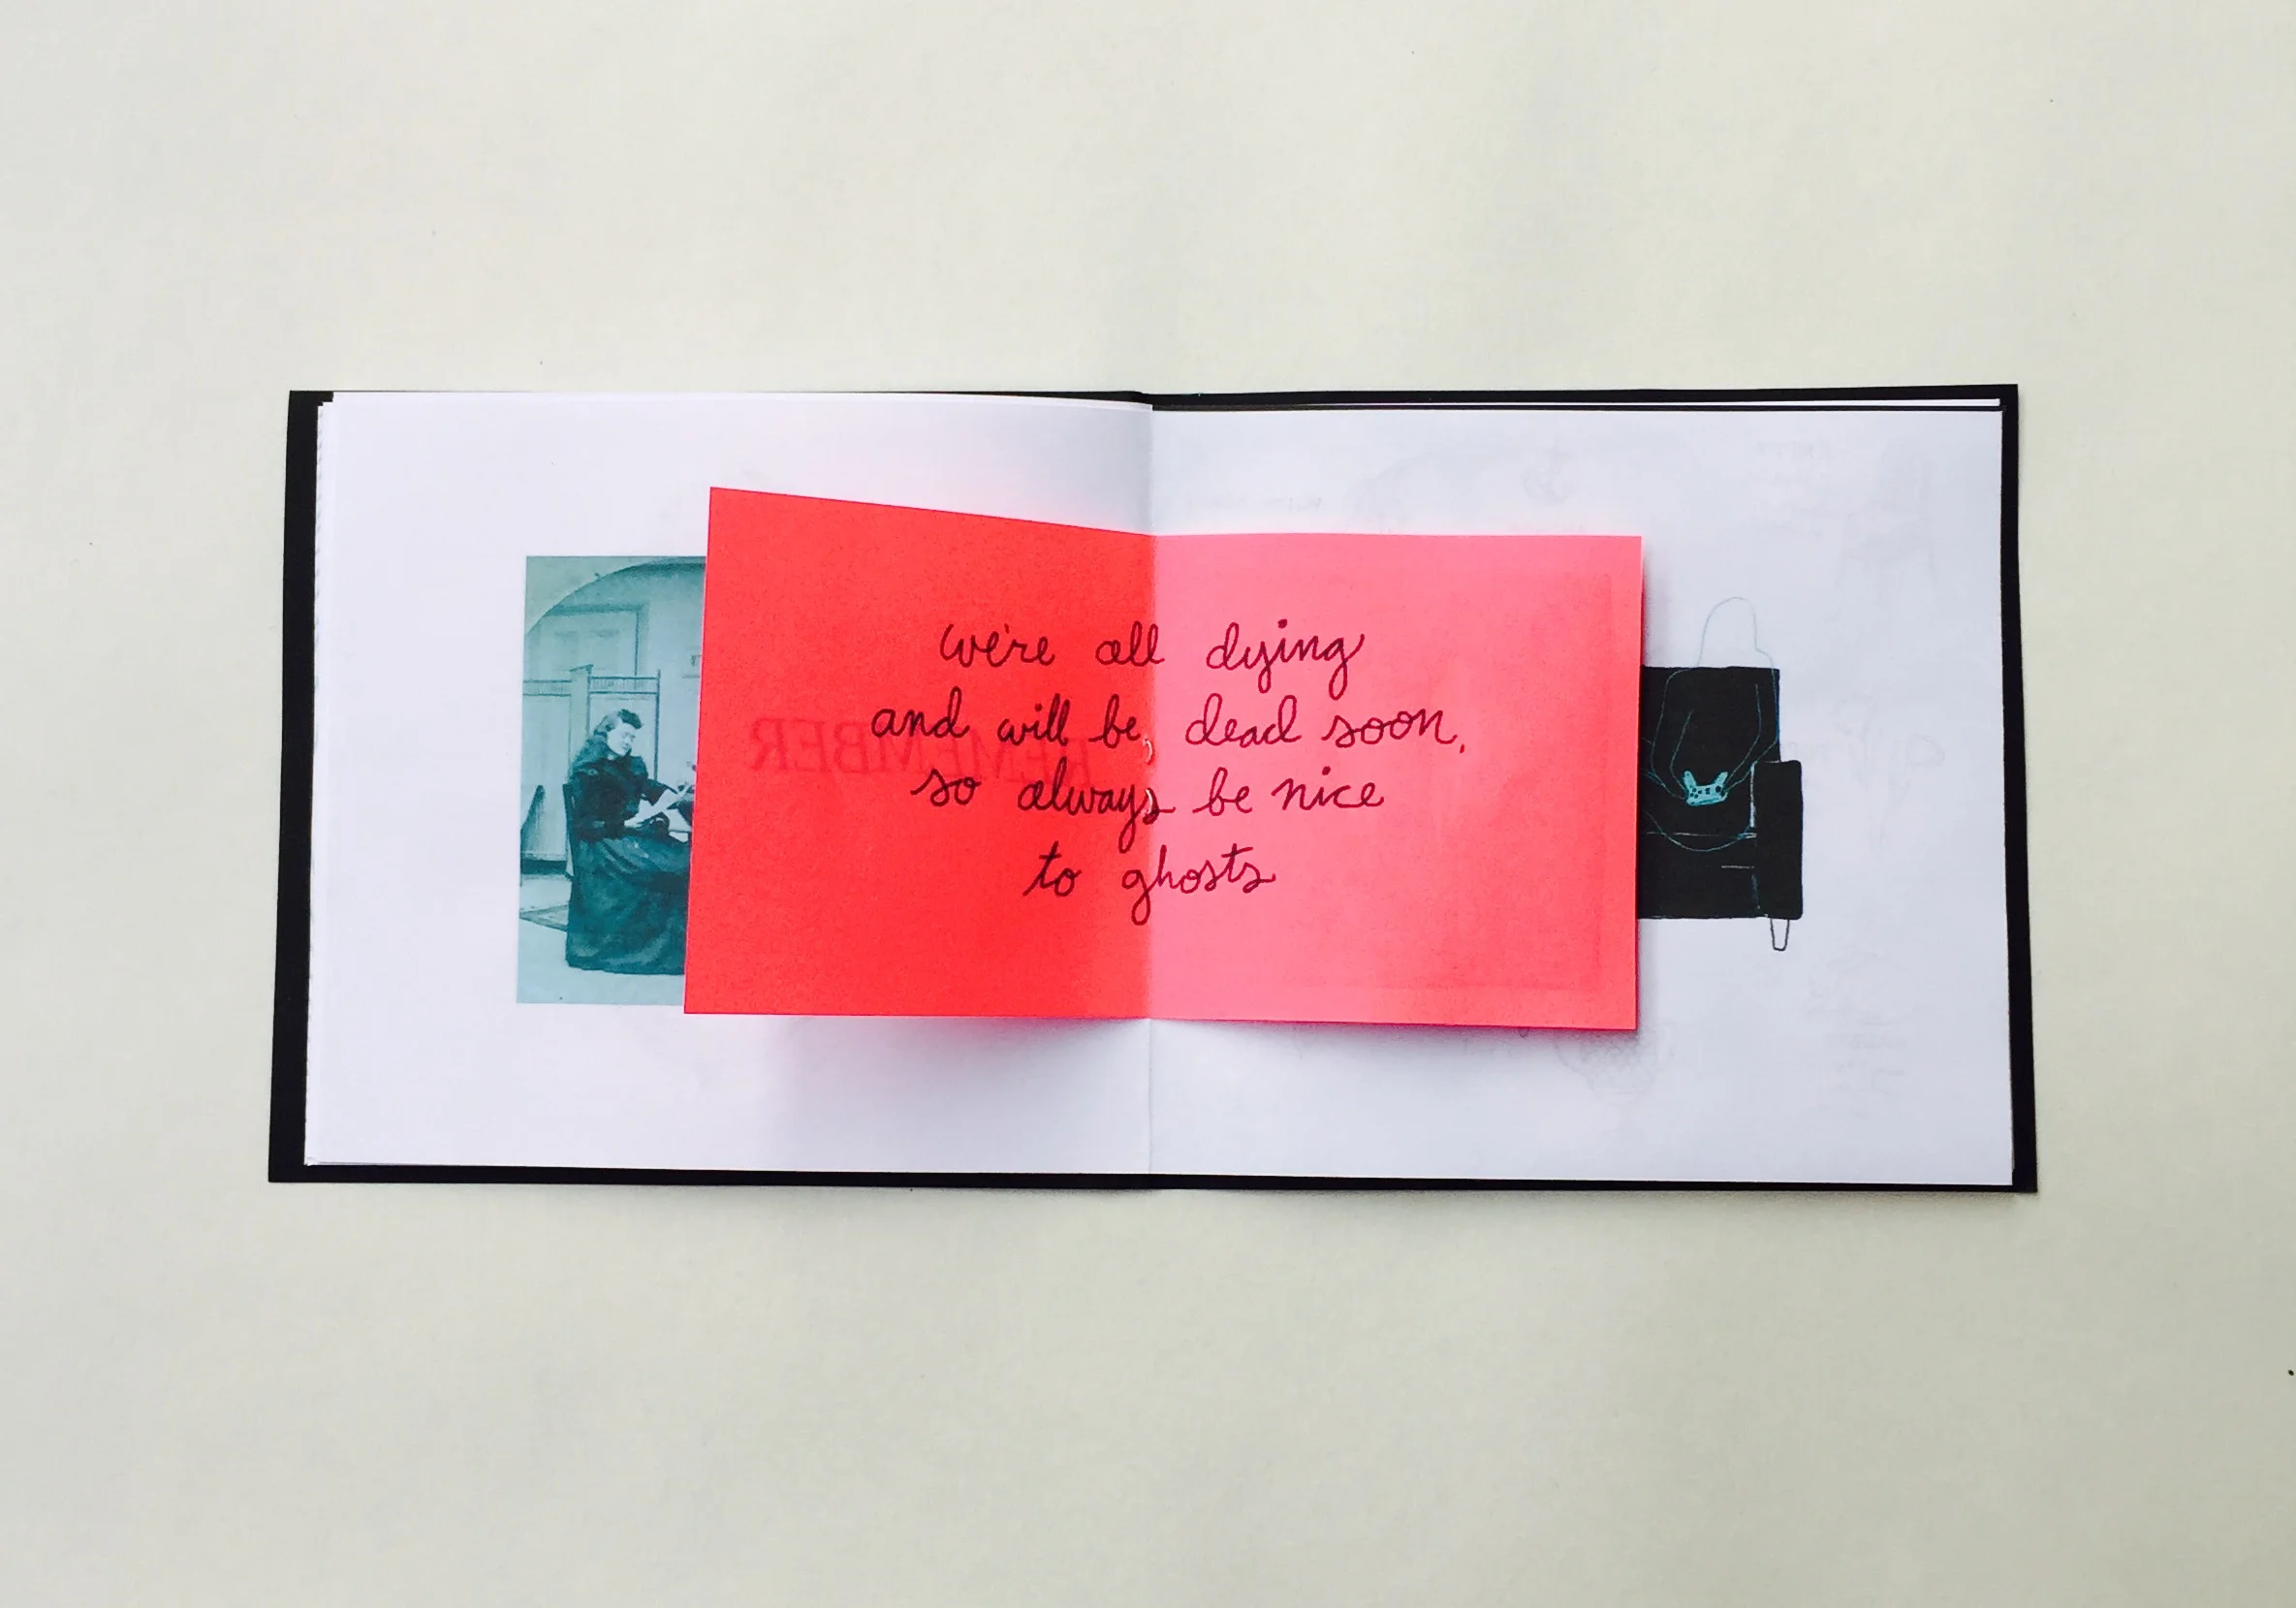 we're all dying
and will be dead soon,
so always be nice
to ghosts
REMEMBER